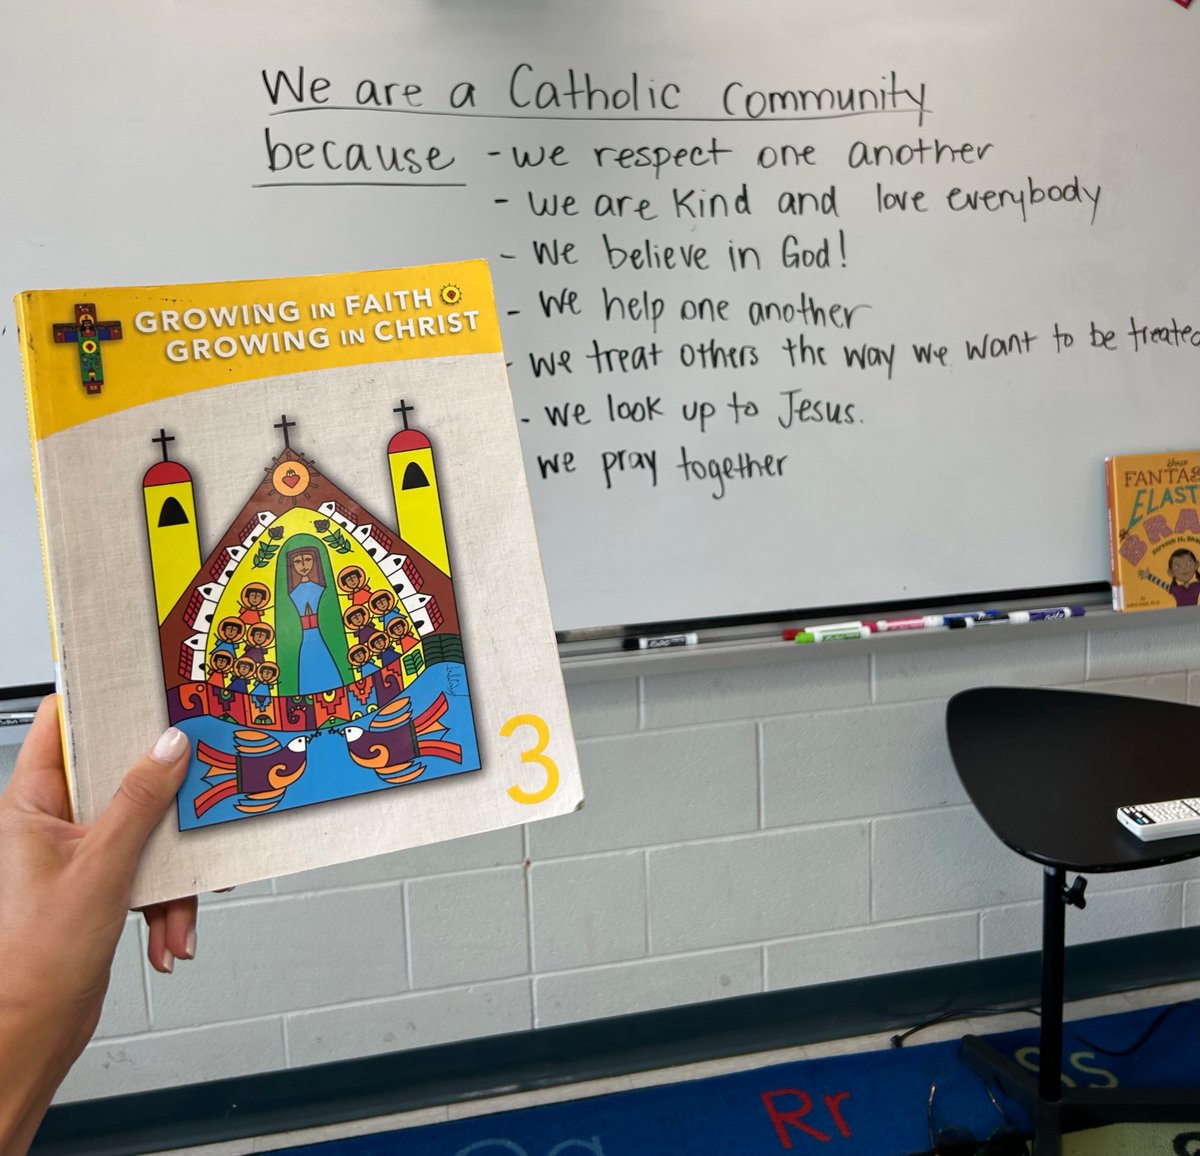 We are a Catholic Community
because - we respect one another
- we are kind and love everybody
- We believe in God!
- We help one another
- we treat others the way we want to be treated
- we look up to Jesus.
we pray together
GROWING IN FAITH
GROWING IN CHRIST
3
Your
FANTAS
ELAST
BRA
Rr
Ss
Qq